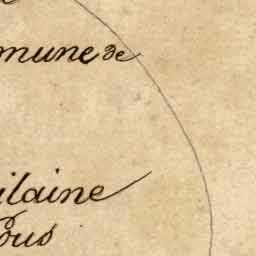 mune de
ilaine
ous